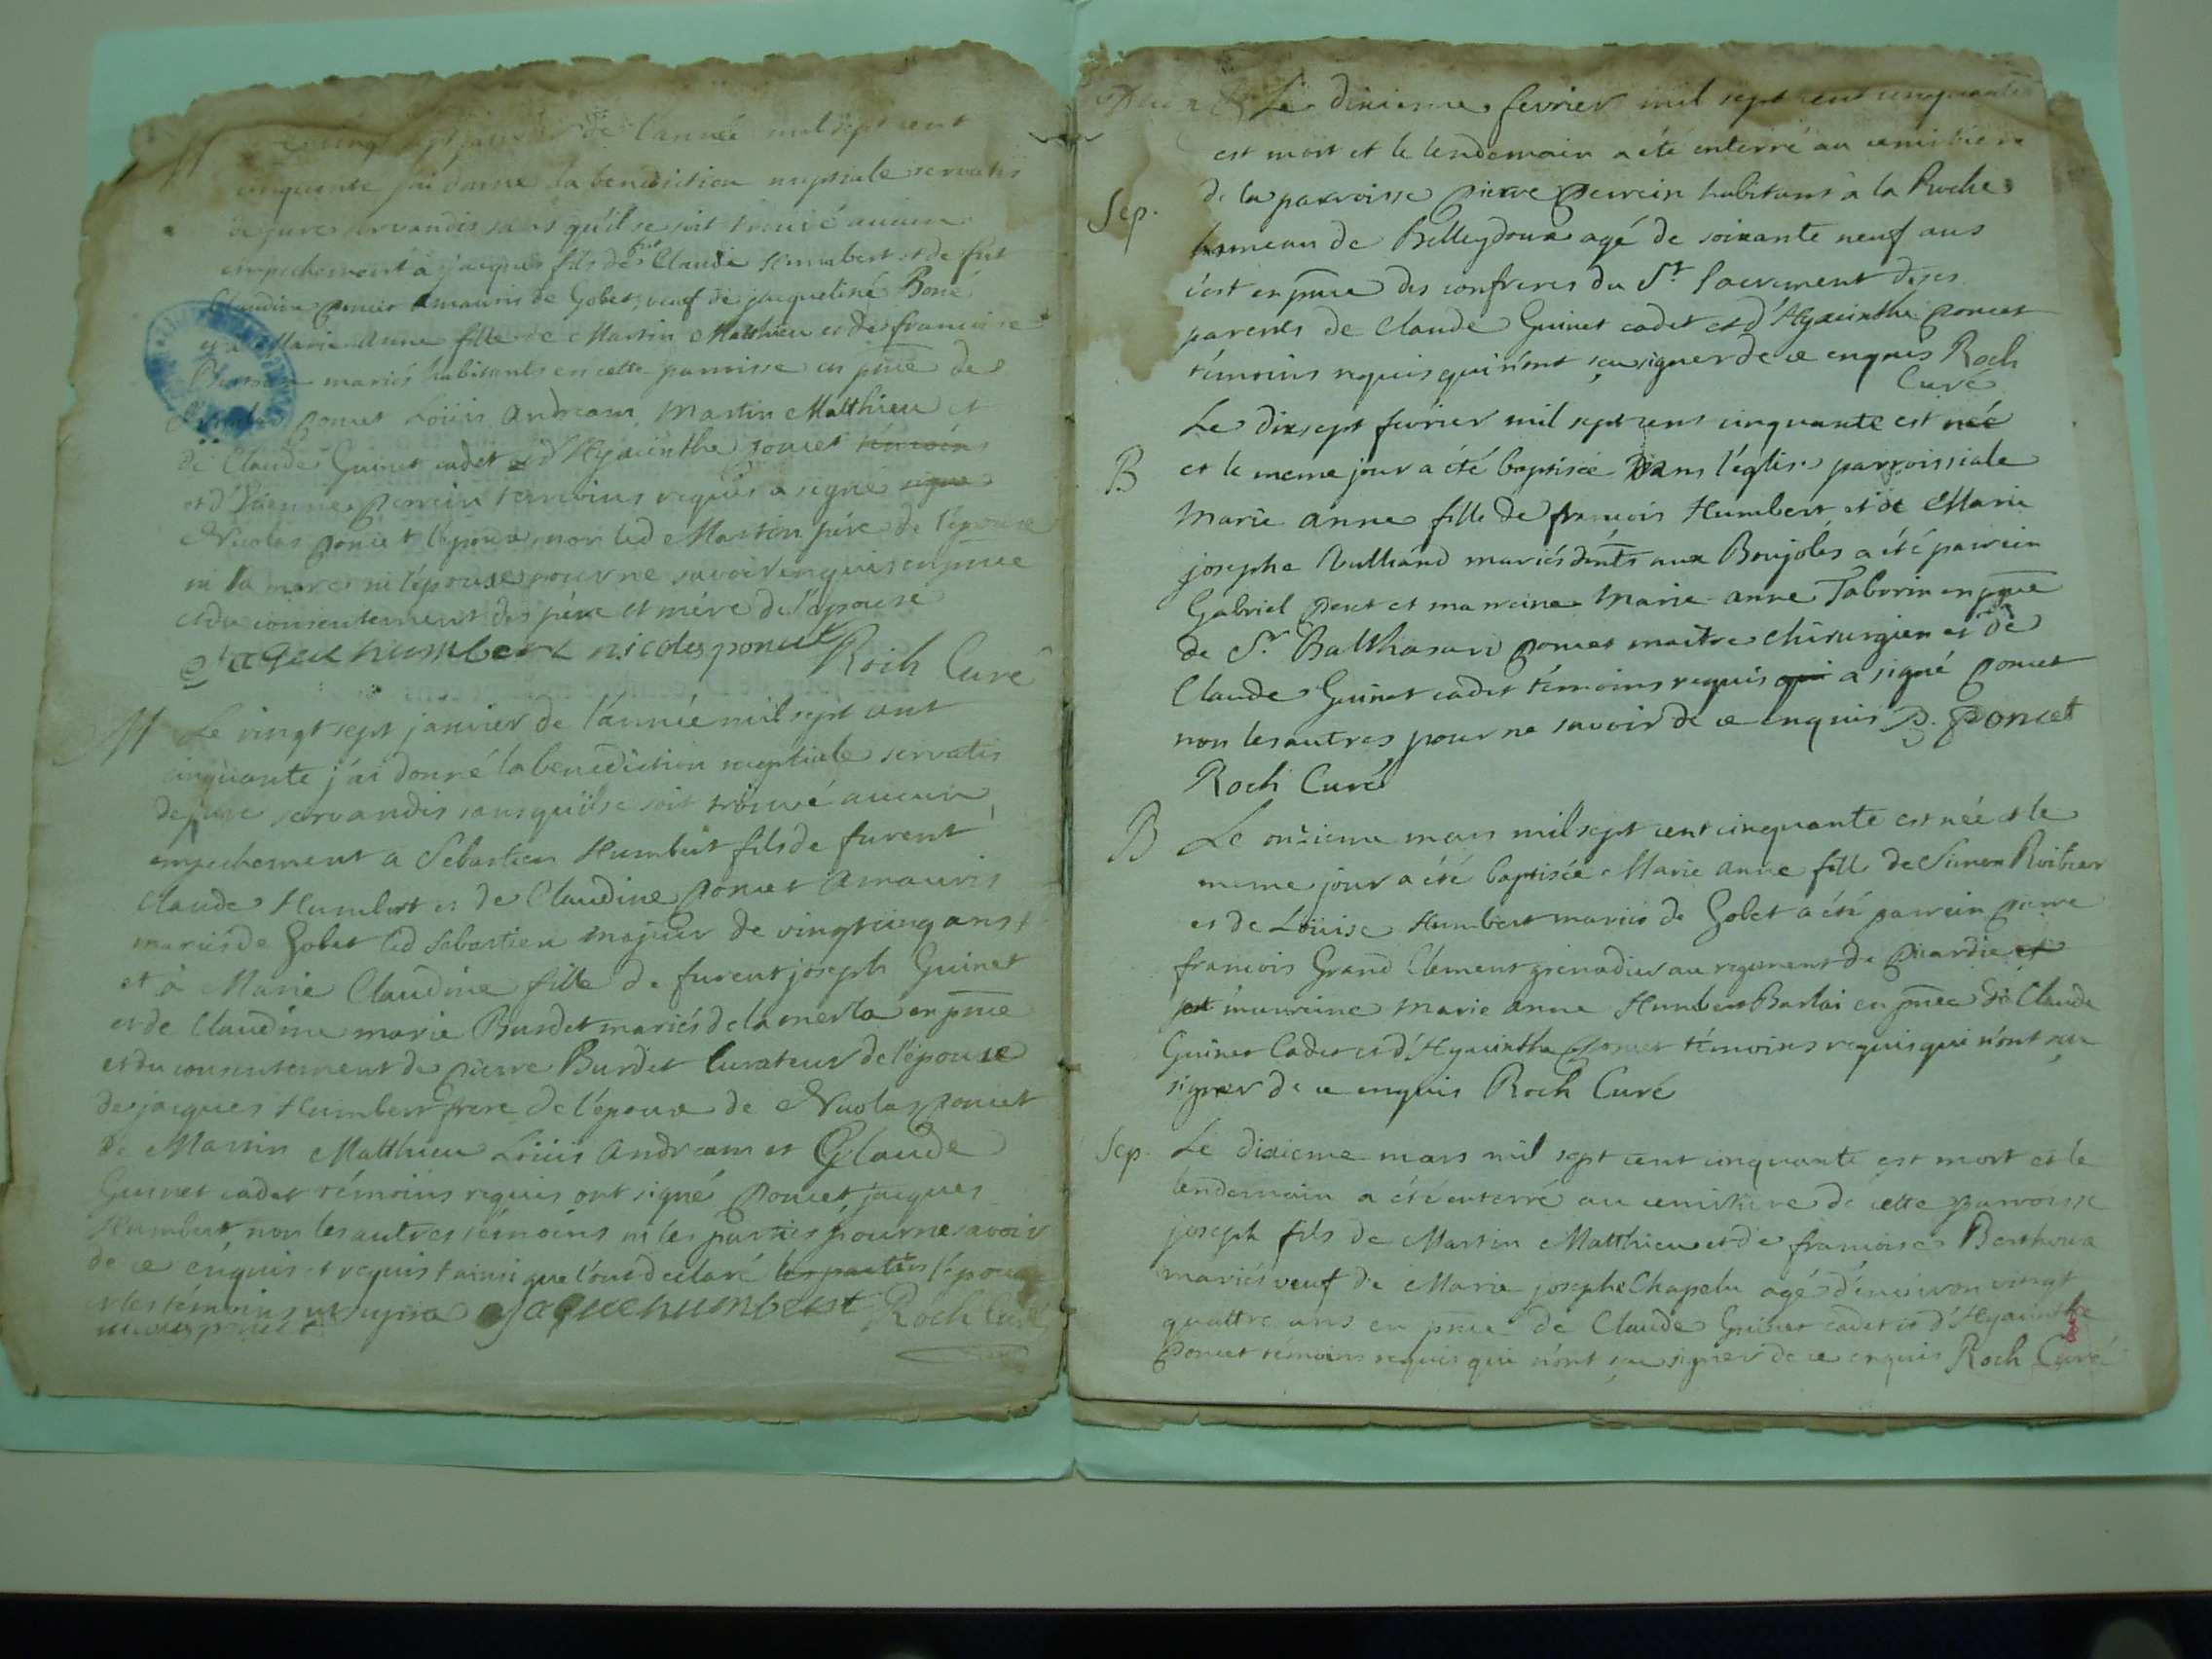 M
vingt sept janvier de l'année mil sept cent
cinquante j'ai donné la benediction nuptiale servatis
de jure servandis sans qu'il se soit trouvé aucun
empechement à jacques fils de Claude Humbert et de fut
Claudine poncet amauris de Gobet, veuf de jacqueline Boné
et à Marie Anne fille de Martin Matthieu et de francoise
mariés habitants en cette parroisse en pnce de
poncet Loüis Andream, Martin Matthieu et
de Claude Guinet cadet et d'Hyacinthe poncet temoins
et d'Etienne perrin temoins requis a signé signe
Nicolas poncet l'époux non led Martin père de l'épouse
ni la mere ni l'épouse pour ne savoir enquis en pnce
et du consentement des père et mére de l'épouse
jaque humbert nicolas poncet Roch Curé
M Le vingt sept janvier de l'année mil sept cent
cinquante j'ai donné la benediction nuptiale servatis
de jure servandis sans qu'il se soit trouvé aucun
empechement a Sebastien Humbert fils de furent
Claude Humbert et de Claudine Poncet amauris
mariés de Gobet led Sebastien majeur de vingt cinq ans
et à Marie Claudine fille de furent joseph Guinet
et de Claudine marie Burdet mariés de la merla en pnce
et du consentement de pierre Burdet Curateur de l'épouse
de jacques Humbert frere de l'époux de Nicolas poncet
de Martin Matthieu Loüis Andream et Claude
Guinet cadet témoins requis ont signé poncet jacques
Humbert non les autres témoins ni les parties pour ne savoir
de ce enquis et requis ainsi que l'ont declaré les parties l'époux
et les témoins ut supra Jaque humbert Roch Curé
nicolas poncet
Le dixieme fevrier mil sept cent cinquante
est mort et le lendemain a été enterré au cemitiere
Sep. de la parroisse pierre perrein habitant à la Roche
hameau de Belleydoux agé de soixante neuf ans
c'est en pnce des confreres du St. Sacrement de ses
parents de Claude Guinet cadet et d'Hyacinthe poncet
témoins requis qui n'ont sçu signer de ce enquis Roch
Curé
Le dixsept fevrier mil sept cens cinquante est née
B et le meme jour a été baptisée dans l'église parroissiale
Marie anne fille de francois Humbert et de Marie
josephe Vulliand mariés dnts aux Boujolés a été parrein
Gabriel peret et marreine Marie anne Taborin en pnce
de Sr. Balthasard poncet maitre chirurgien et de
Claude Guinet cadet témoins requis qui a signé poncet
non les autres pour ne savoir de ce enquis B. poncet
Roch Curé
B Le onzieme mars mil sept cent cinquante est née et le
meme jour a été baptisée Marie anne fille de Simon
et de Loüise Humbert mariés de Gobet a été parrein pierre
francois Grand Clement grenadier au regiment de picardie et
et marreine Marie anne Humbert Barlai en pnce de Claude
Guinet Cadet et d'Hyacinthe poncet témoins requis qui n'ont sçu
signer de ce enquis Roch Curé
Sep. Le dixieme mars mil sept cent cinquante est mort et le
lendemain a été enterré au cemitiere de cette parroisse
joseph fils de Martin Matthieu et de francoise Berthoux
mariés veuf de Marie josephe Chapelu agé d'environ vingt
quattre ans en pnce de Claude Guinet cadet et d'Hyacinthe
Poncet témoins requis qui n'ont sçu signer de ce enquis Roch Curé